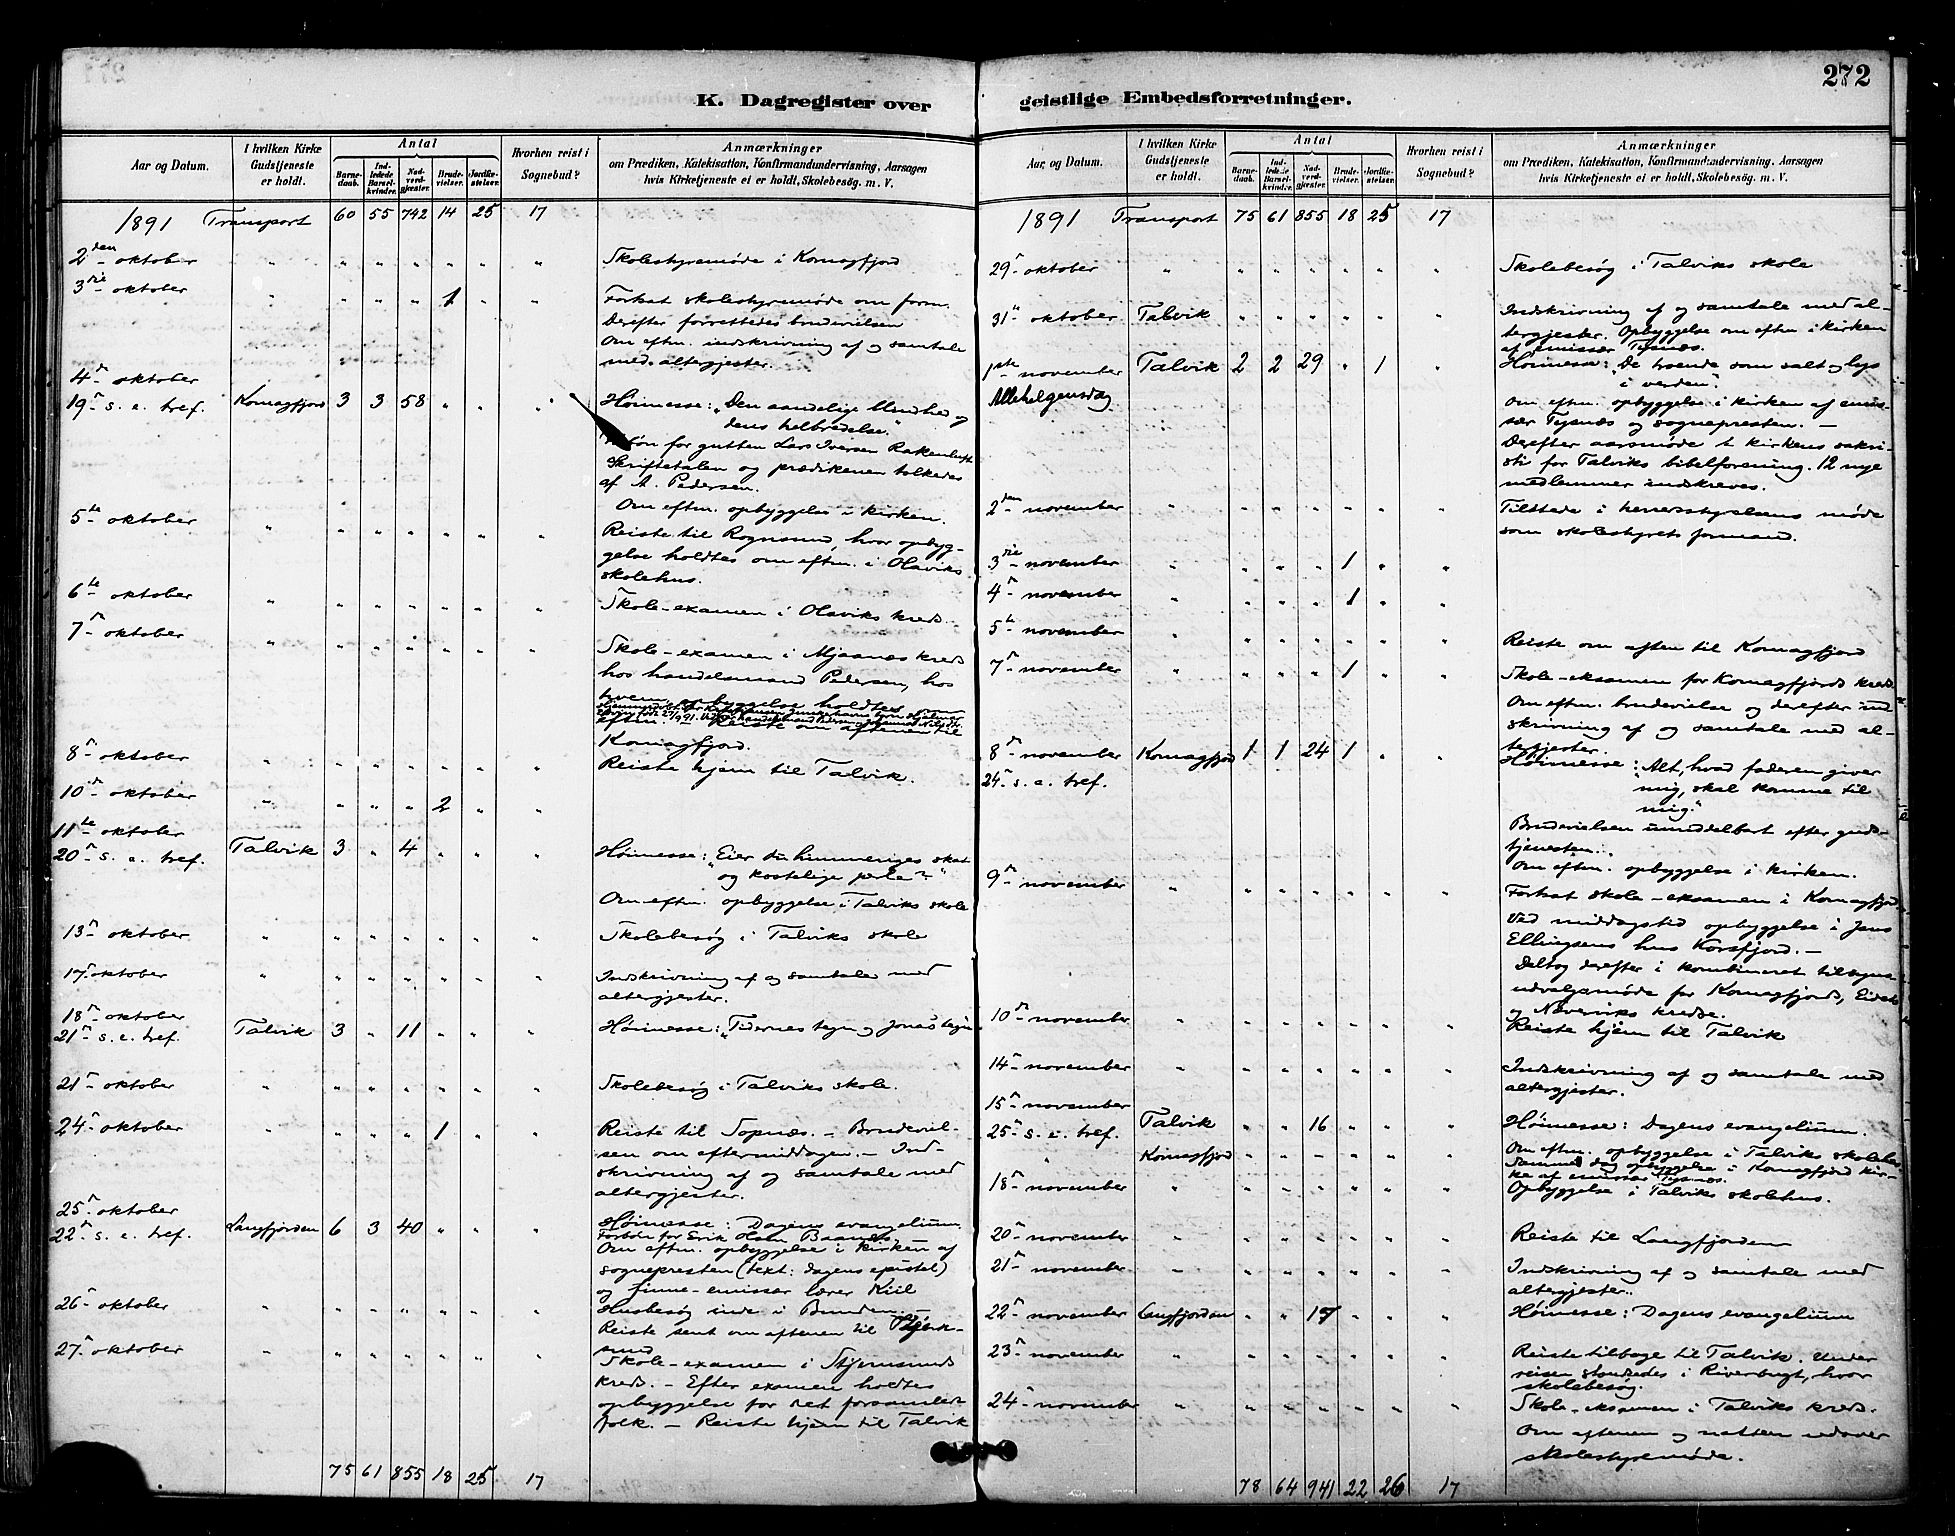 272
K. Dagregister over
Aar og Datum. I hvilken Kirke Gudstjeneste er holdt. Antal Barnedaab. Indledede Barselkvinder. Nadverdgjester. Brudevielser. Jordfæstelser. Hvorhen reist i Sognebud? Anmærkninger om Prædiken, Katekisation, Konfirmandundervisning, Aarsagen hvis Kirketjeneste ei er holdt, Skolebesøg. m. V.
1891 Transport 60 55 742 14 25 17
2den oktober " " " " " " " Skolestyremøde i Komagfjord
3die oktober " " " " 1 " " Forkat skolestyremøde om form.
Derefter forrettedes brudevielsen
Om eftm. indskrivning af og samtale
med altergjester.
4de oktober
19de s. e. tref. Komagfjord 3 3 58 " " " Høimesse: "Den aandelige blindhed og
dens helbredelse."
Forbøn for gutten Lars Iversen
Skriftetalen og prædikenen tolkedes
af A. Pedersen.
Om eftm. opbyggelse i kirken.
5te oktober " " " " " " " Reiste til Rognsund, hvor opbyg-
gelse holdtes om eftm. i Olaviks
skolehus.
6te oktober " " " " " " " Skole-examen i Olaviks kreds.
7de oktober " " " " " " " Skole-examen i Mjaanes kreds
hos handelsmand Pedersen, hos
hvem opbyggelse holdtes om
eftm. Reiste om aftenen til
Komagfjord.
8de oktober " " " " " " " Reiste hjem til Talvik.
10de oktober " " " " 2 " "
11te oktober
20de s. e. tref. Talvik 3 " 4 " " " Høimesse: "Eier du himmeriges skat
og kostelige perle?"
Om eftm. opbyggelse i Talviks skole
13de oktober " " " " " " " Skolebesøg i Talviks skole
17de oktober " " " " " " " Indskrivning af og samtale med
altergjester.
18de oktober
21de s. e. tref. Talvik 3 " 11 " " " Høimesse: "Tidernes tegn og Jonas tegn
21de oktober " " " " " " " Skolebesøg i Talviks skole.
24de oktober " " " " 1 " " Reiste til Sopnæs. – Brudeviel-
sen om eftermiddagen. – Ind-
skrivning af og samtale med
altergjester.
25de oktober
22de s. e. tref. Langfjorden 6 3 40 " " " Høimesse: Dagens evangelium.
Forbøn for Erik Olsen
Om eftm. opbyggelse i kirken af
sognepresten (text: dagens epistel)
og finne-emissær lærer Kiil
26de oktober " " " " " " " Husbesøg inde i Bunden. –
Reiste sent om aftenen til
27de oktober " " " " " " " Skole-examen i Stjernsunds
kreds. – Efter examen holdtes
opbyggelse for det forsamlede
folk. – Reiste hjem til Talvik
75 61 855 18 25 17
geistlige Embedsforretninger.
Aar, og Datum. I hvilken Kirke Gudstjeneste er holdt. Antal Barnedaab. Indledede Barselkvinder. Nadverdgjester. Brudevielser. Jordfæstelser. Hvorhen reist i Sognebud? Anmærkninger om Prædiken, Katekisation, Konfirmandundervisning, Aarsagen hvis Kirketjeneste ei er holdt, Skolebesøg. m. V.
1891 Transport 75 61 855 18 25 17
29de oktober " " " " " " " Skolebesøg i Talviks skole
31te oktober Talvik " " " " " " Indskrivning af og samtale med al-
tergjester. Opbyggelse om eftm. i kirken
af emissær Tysnæs.
1ste november Talvik 2 2 29 " 1 " Høimesse: "De troende som salt og lys
i verden".
Allehelgensdag Om eftm. opbyggelse i kirken af emis-
sær Tysnæs og sognepresten. –
Derefter aarsmøde i kirkens sakri-
sti for Talviks bibelforening. 12 nye
medlemmer indskreves.
2den november " " " " " " " Tilstede i herredsstyrelsens møde
som skolestyrets formand.
3die november " " " " 1 " "
4de november " " " " 1 " "
5te november " " " " " " " Reiste om aften til Komagfjord
7de november " " " " 1 " " Skole-eksamen for Komagfjords kreds.
Om eftm. brudevielse og derefter ind-
skrivning af og samtale med al-
tergjester.
8de november Komagfjord 1 1 24 1 " " Høimesse: "Alt, hvad faderen giver
24de s. e. tref. mig, skal komme til
mig."
Brudevielsen umiddelbart efter guds-
tjenesten.
Om eftm. opbyggelse i kirken.
9de november " " " " " " " Forkat skole-eksamen i Komagfjord
Ved middagstid opbyggelse i Jens
Ellingsens hus Korsfjord. –
Deltog derefter i kombineret tilsyns-
udvalgsmøde for Komagfjords,
og Næverviks kredse.
10de november " " " " " " " Reiste hjem til Talvik
14de november " " " " " " " Indskrivning af og samtale med
altergjester.
15de november
25de s. e. tref. Talvik " " 16 " " " Høimesse: Dagens evangelium.
Om eftm. opbyggelse i Talviks skolehus
" Komagfjord " " " " " " Samme dag opbyggelse i Komagfjord kir-
ke af emissær Tysnæs.
18de november " " " " " " " Opbyggelse i Talviks skolehus.
20de november " " " " " " " Reiste til Langfjorden
21de november " " " " " " " Indskrivning af og samtale med
altergjester.
22de november Langfjorden " " 17 " " " Høimesse: Dagens evangelium
23de november " " " " " " " Reiste tilbage til Talvik. Under
reisen standsedes i Riverbugt, hvor
skolebesøg.
24de november " " " " " " " Skole-eksamen i Talviks kreds.
Om aftenen og natten udover
skolestyremøde.
78 64 941 22 26 17